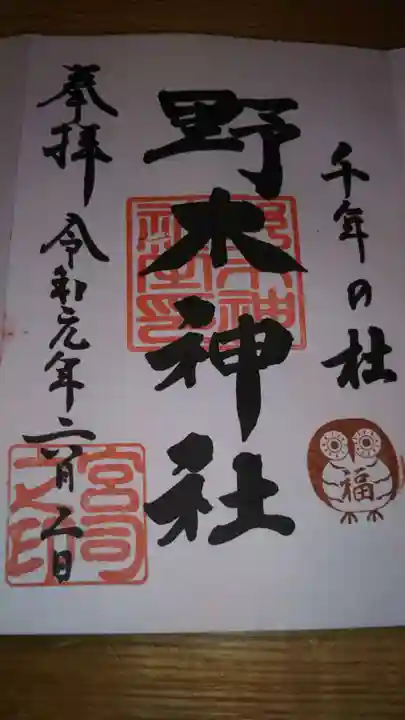 千年の杜
福
野木神社
野木神社之印
奉拝 令和元年六月二日
宮司之印